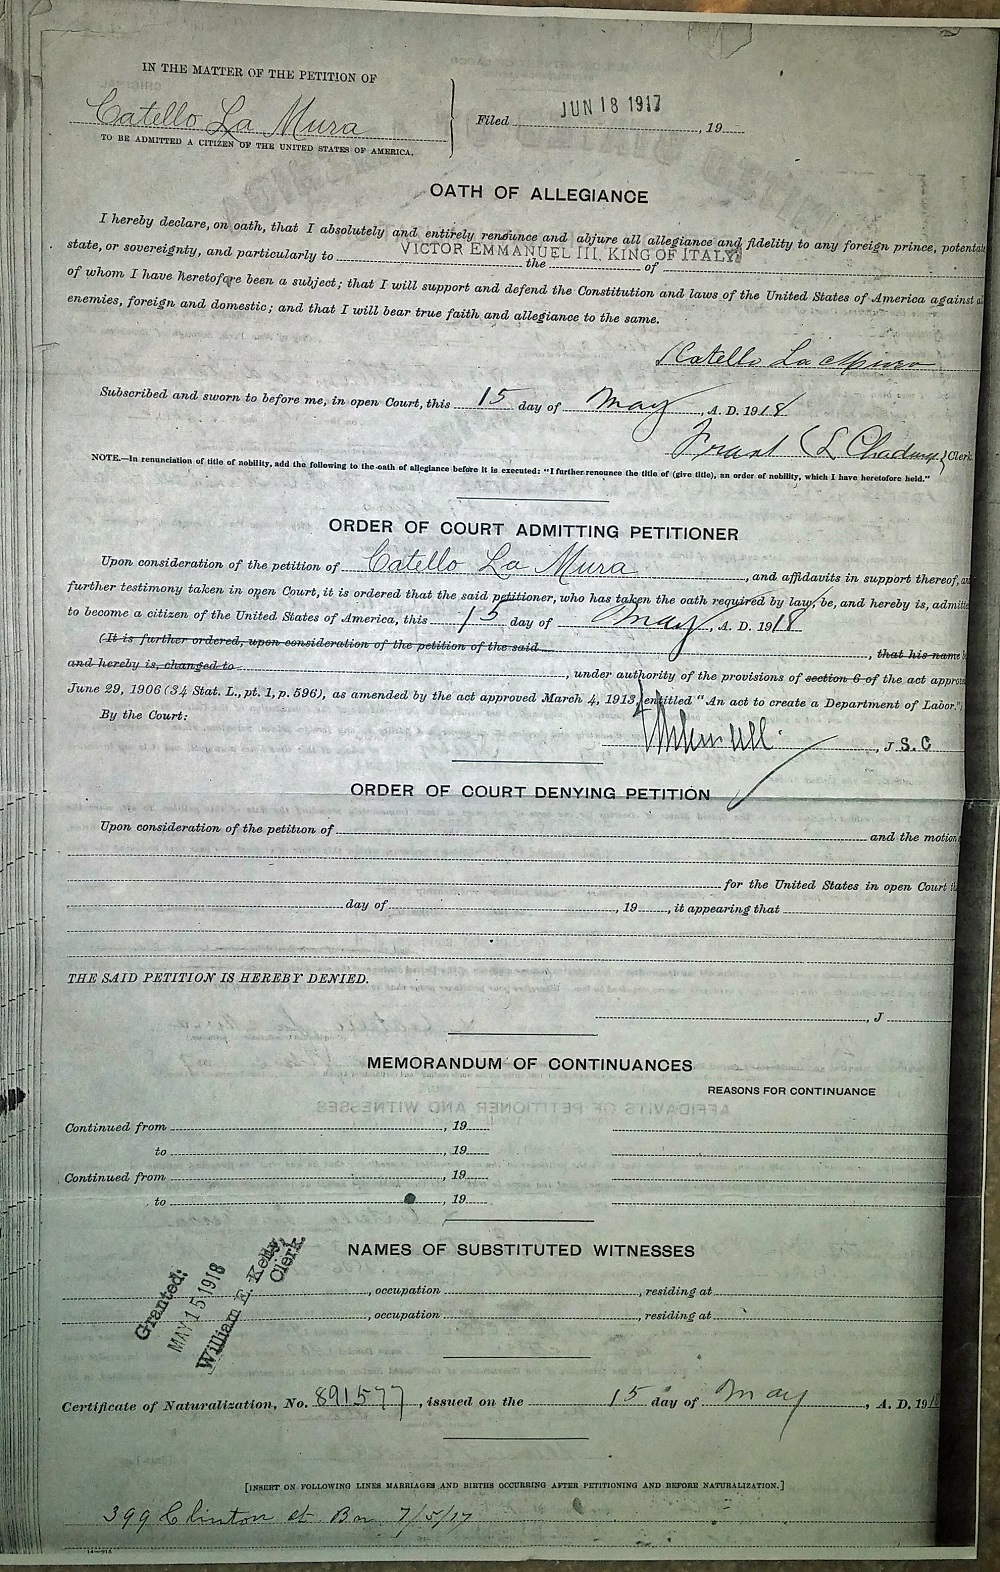 IN THE MATTER OF THE PETITION OF
Catello La Mura
TO BE ADMITTED A CITIZEN OF THE UNITED STATES OF AMERICA.
Filed JUN 18 1917, 19
OATH OF ALLEGIANCE
I hereby declare, on oath, that I absolutely and entirely renounce and abjure all allegiance and fidelity to any foreign prince, potentate
state, or sovereignty, and particularly to VICTOR EMMANUEL III, KING OF ITALY the of
of whom I have heretofore been a subject; that I will support and defend the Constitution and laws of the United States of America against
enemies, foreign and domestic; and that I will bear true faith and allegiance to the same.
Catello La Mura
Subscribed and sworn to before me, in open Court, this 15 day of May, A. D. 1918
Frank L Clerk.
NOTE.—In renunciation of title of nobility, add the following to the oath of allegiance before it is executed: "I further renounce the title of (give title), an order of nobility, which I have heretofore held."
ORDER OF COURT ADMITTING PETITIONER
Upon consideration of the petition of Catello La Mura, and affidavits in support thereof,
further testimony taken in open Court, it is ordered that the said petitioner, who has taken the oath required by law, be, and hereby is, admitte
to become a citizen of the United States of America, this 15 day of May, A. D. 1918
(It is further ordered, upon consideration of the petition of the said, that his name
and hereby is, changed to, under authority of the provisions of section 6 of the act approv
June 29, 1906 (34 Stat. L., pt. 1, p. 596), as amended by the act approved March 4, 1913, entitled "An act to create a Department of Labor.")
By the Court:
, J S. C
ORDER OF COURT DENYING PETITION
Upon consideration of the petition of and the motion
for the United States in open Court
day of, 19, it appearing that
THE SAID PETITION IS HEREBY DENIED.
, J
MEMORANDUM OF CONTINUANCES
REASONS FOR CONTINUANCE
Continued from, 19
to, 19
Continued from, 19
to, 19
NAMES OF SUBSTITUTED WITNESSES
, occupation, residing at
, occupation, residing at
Granted:
MAY 15 1918
William E. Kelly,
Clerk.
Certificate of Naturalization, No. 891577, issued on the 15 day of May, A. D. 1918
[INSERT ON FOLLOWING LINES MARRIAGES AND BIRTHS OCCURRING AFTER PETITIONING AND BEFORE NATURALIZATION.]
399 Clinton st. Bn 7/5/17
14—918